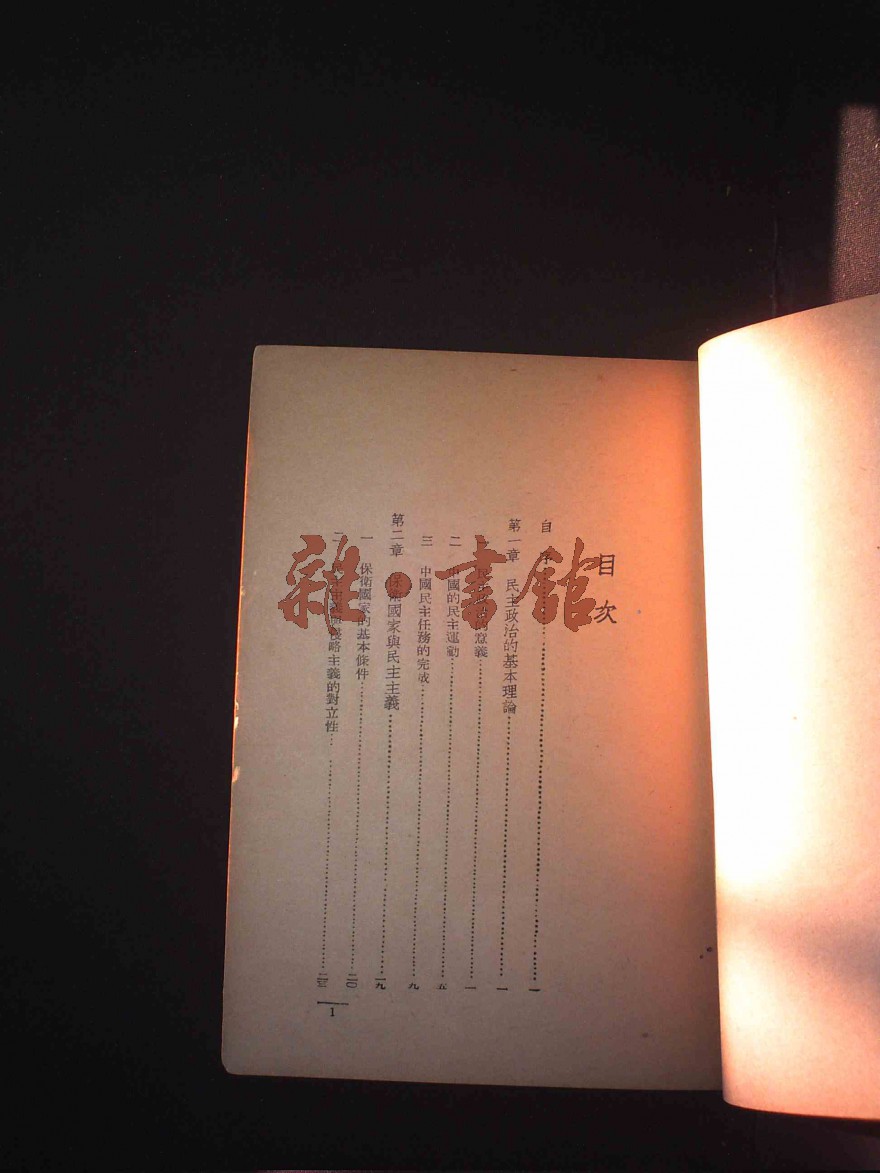 目次
自序 一
第一章 民主政治的基本理論 一
一 民主政治的意義 一
二 中國的民主運動 五
三 中國民主任務的完成 九
第二章 保衛國家與民主主義 一九
一 保衛國家的基本條件 二〇
二 主義與侵略主義的對立性 二三
1
雜·書館